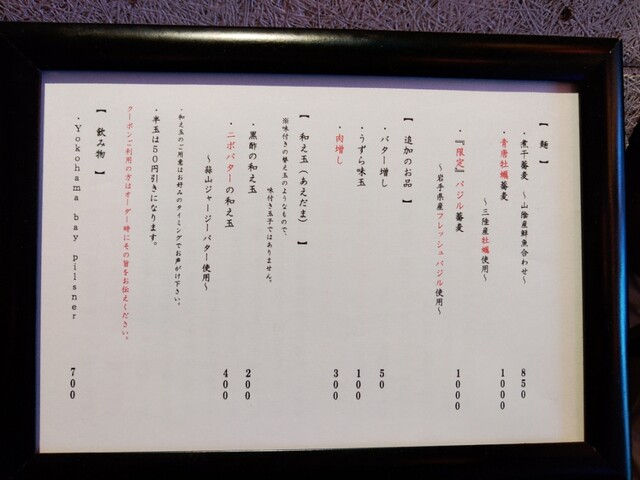 【 麺 】
・煮干蕎麦 ～山陰産鮮魚合わせ～ 850
・青唐牡蠣蕎麦 1000
～三陸産牡蠣使用～
・『限定』バジル蕎麦 1000
～岩手県産フレッシュバジル使用～
【 追加のお品 】
・バター増し 50
・うずら味玉 100
・肉増し 300
【 和え玉（あえだま） 】
※味付きの替え玉のようなもので、
味付き玉子ではありません。
・黒酢の和え玉 200
・ニボバターの和え玉 400
～蒜山ジャージーバター使用～
・和え玉のご用意はお好みのタイミングでお声がけ下さい。
・半玉は50円引きになります。
クーポンご利用の方はオーダー時にその旨をお伝えください。
【 飲み物 】
・Yokohama bay pilsner 700